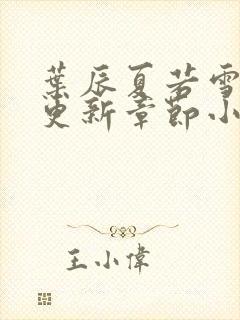 葉辰夏若雪
更新章節小
王小偉